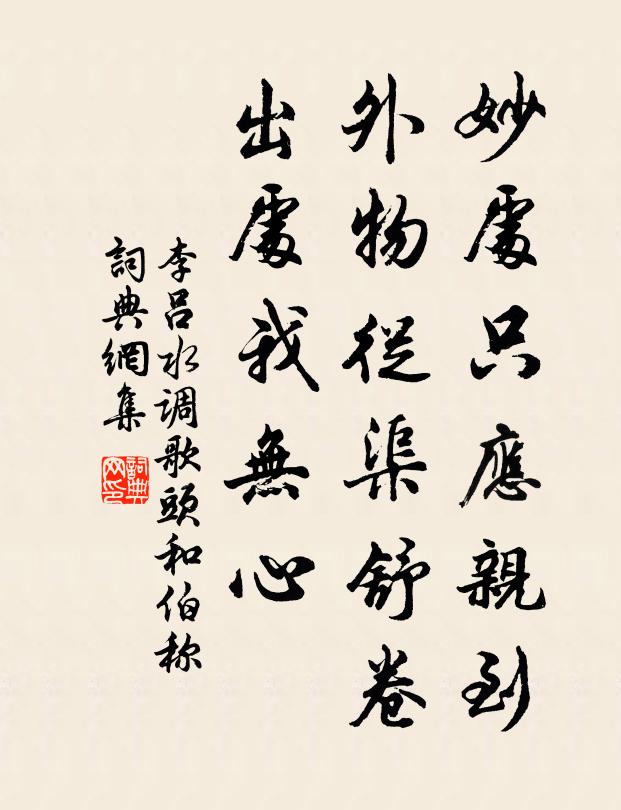 妙處只應親到
外物從渠舒卷
出處我無心
李呂水调歌頭和伯称
詞典網集
詞典網印